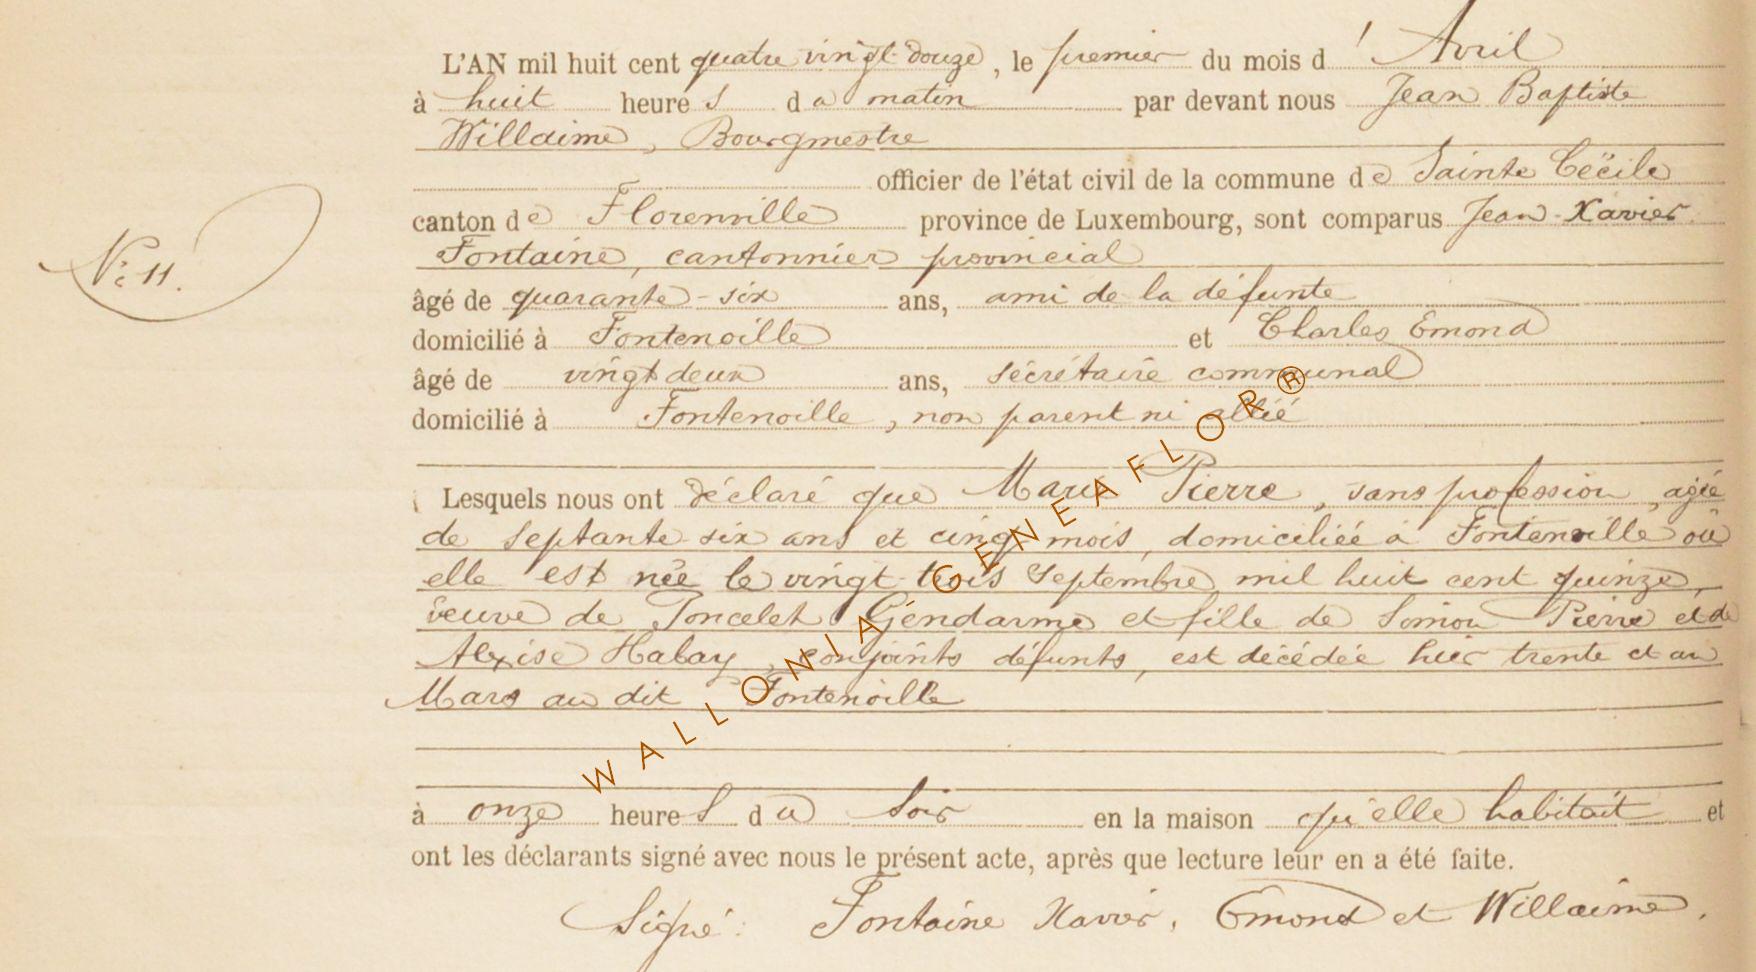 L'AN mil huit cent quatre vingt douze, le premier du mois d'Avril
à huit heures du matin par devant nous Jean Baptiste
Willaime, Bourgmestre
officier de l'état civil de la commune de Sainte Cécile
canton de Florenville province de Luxembourg, sont comparus Jean-Xavier
Fontaine, cantonnier provincial
âgé de quarante-six ans, ami de la défunte
domicilié à Fontenoille et Charles Emond
âgé de vingt deux ans, sécrétaire communal
domicilié à Fontenoille, non parent ni allié
N° 11.
Lesquels nous ont déclaré que Marie Pierre, sans profession, agée
de septante-six ans et cinq mois, domiciliée à Fontenoille où
elle est née le vingt-trois Septembre mil huit cent quinze,
veuve de Poncelet Gendarme et fille de Simon Pierre et de
Alexise Habay, conjoints défunts, est décédée hier trente et un
Mars au dit Fontenoille
à onze heures du soir en la maison qu'elle habitait et
ont les déclarants signé avec nous le présent acte, après que lecture leur en a été faite.
Signé: Fontaine Xavier, Emond et Willaime.
WALLONIA GENEAFLOR®